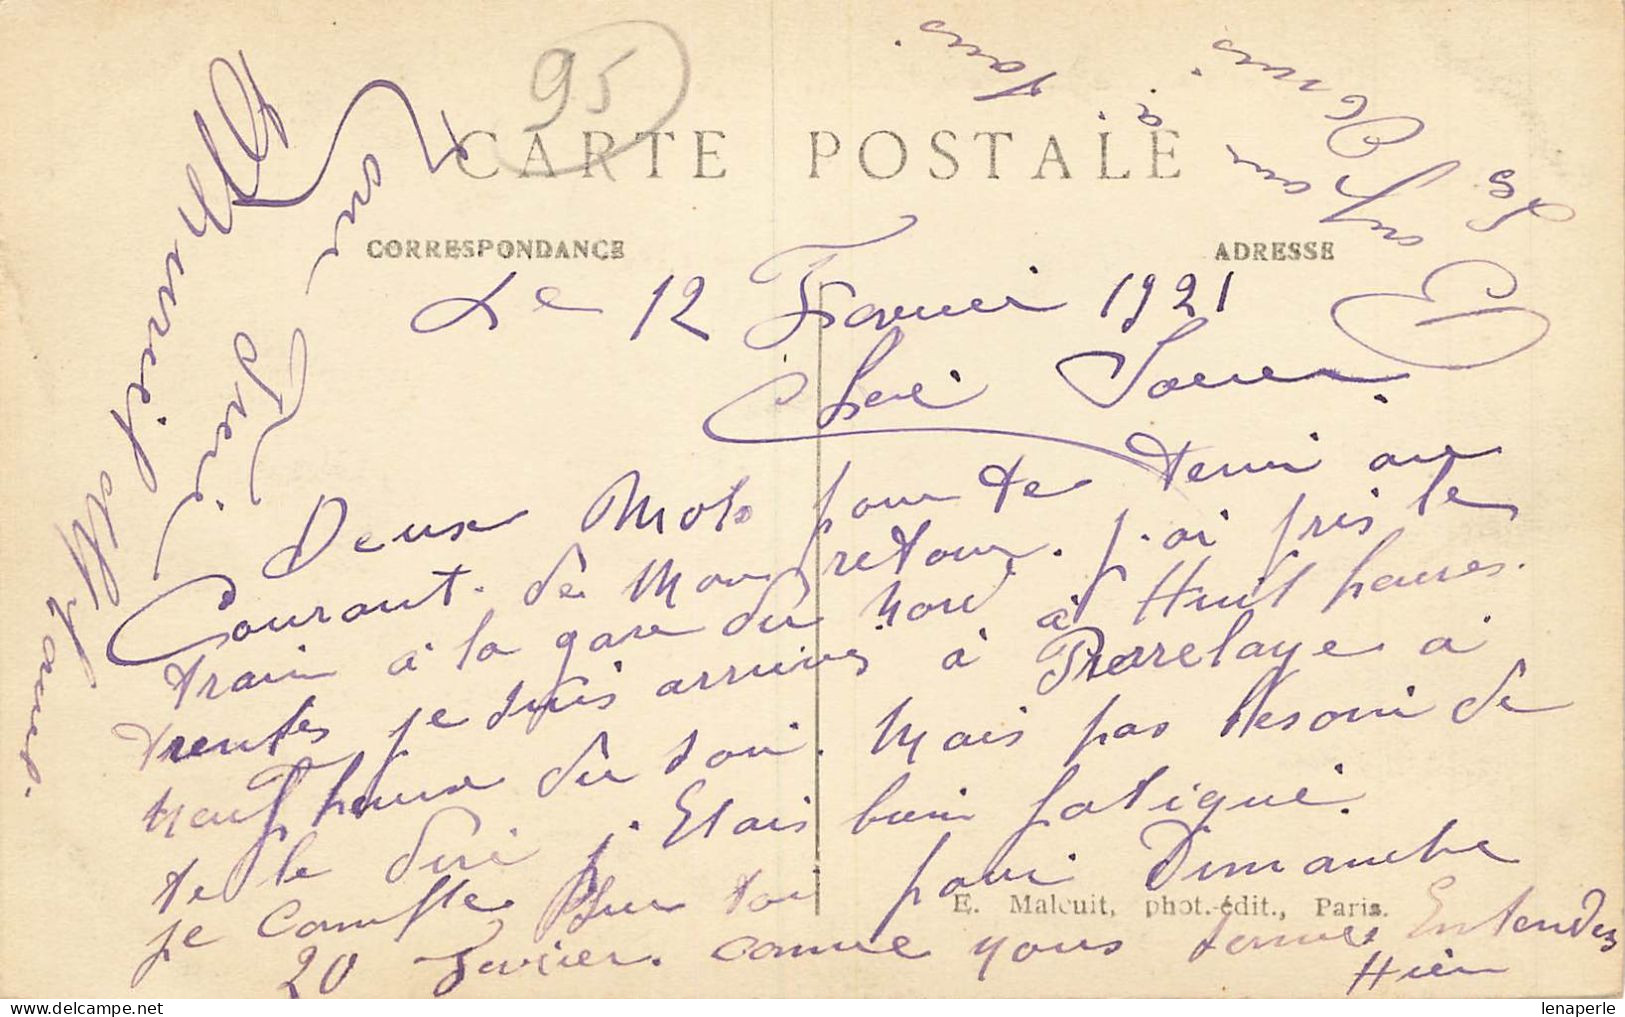 95
CARTE POSTALE
CORRESPONDANCE
ADRESSE
Le 12 Fevrier 1921
Cheré Soeur
Deux Mots pour te tenir au
Courant. de Mon retour. j.ai pris le
train à la gare du Nord à Huit heures.
trentes je suis arrives à Pierrelaye à
neuf heure du soir. Mais pas besoin de
te le dire j. Etais bien fatigué.
je compte sur toi pour Dimanche
20 Fevrier. comme nous sommes Entendus
Hier
E. Malcuit, phot.-édit., Paris.
Ton Frère
à
Paris
lenaperle